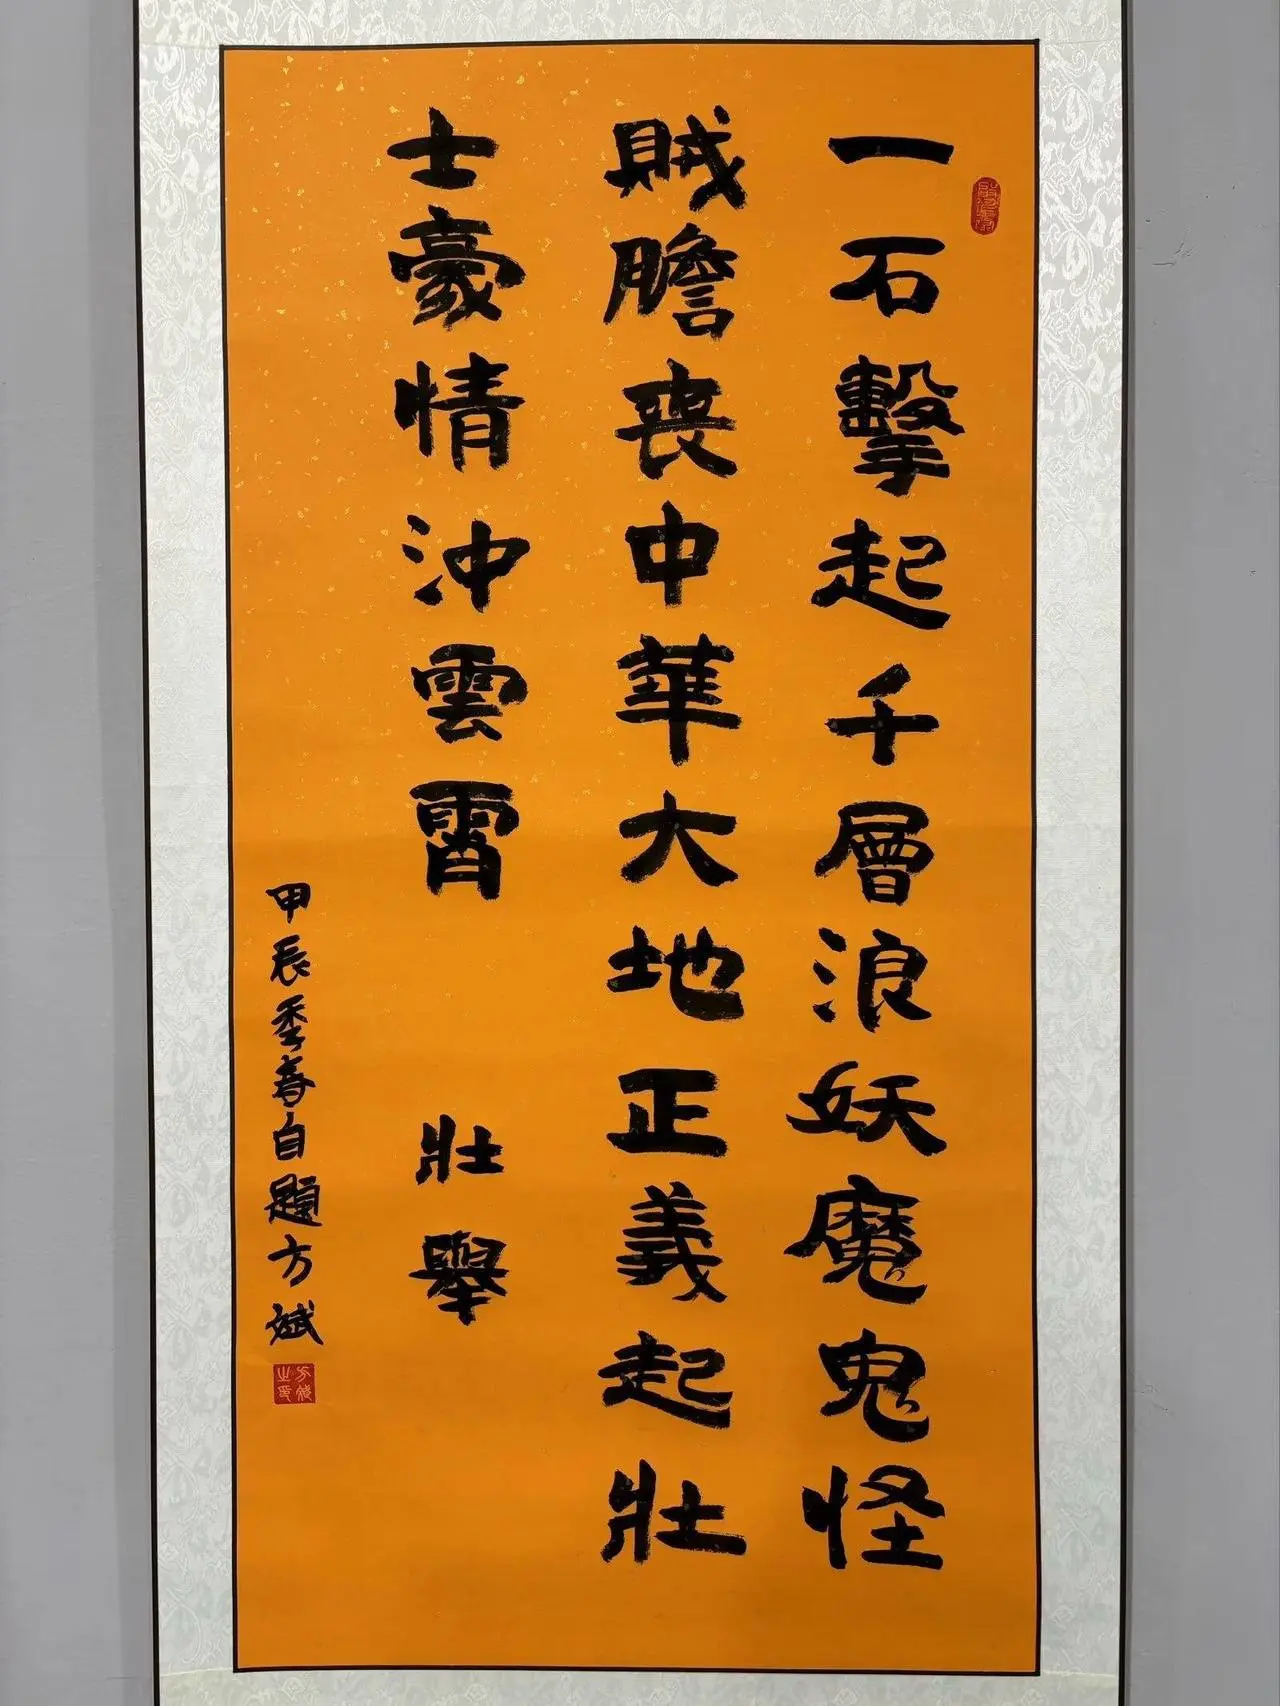 一石擊起千層浪妖魔鬼怪
賊膽喪中華大地正義起壯
士豪情沖雲霄 壯舉
甲辰季春自題方斌